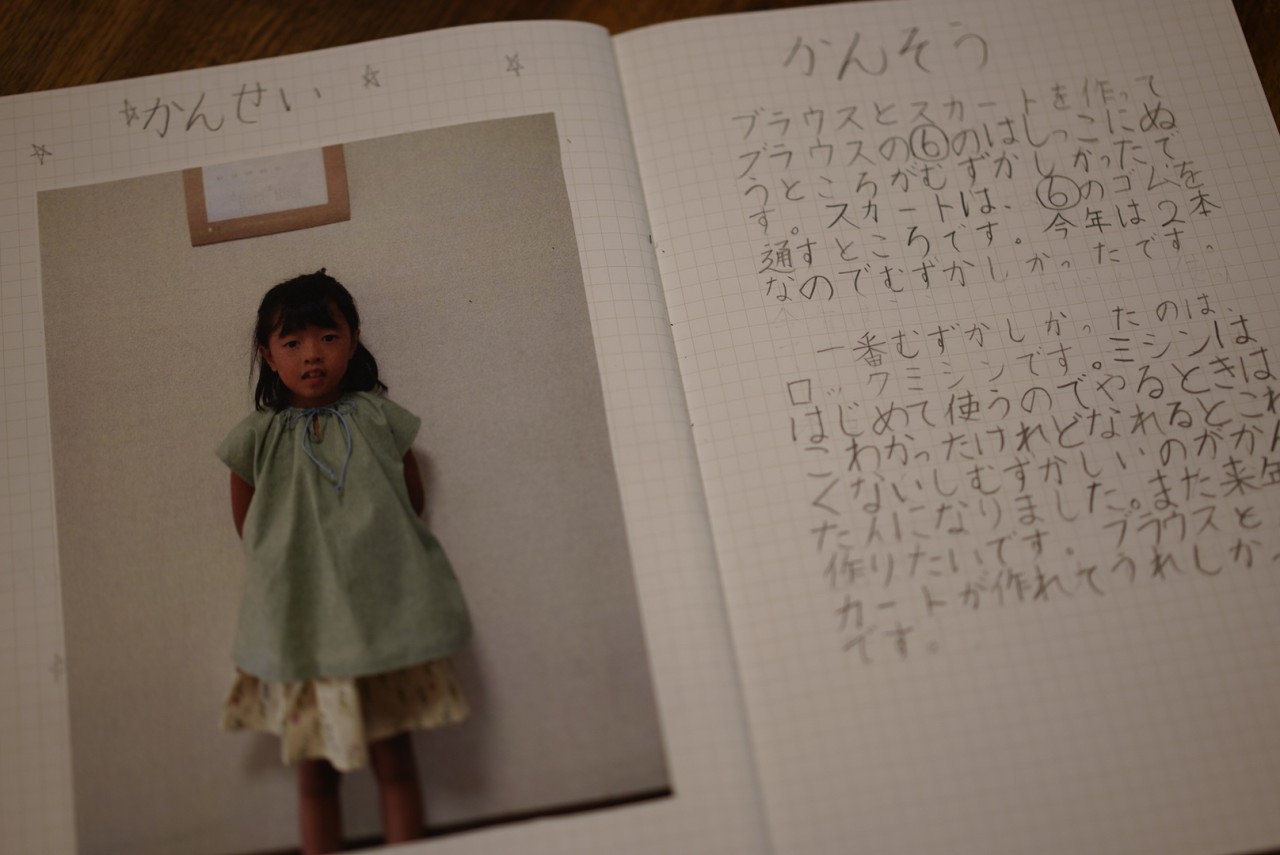 かんせい
かんそう
ブラウスとスカートを作って
ブラウスの⑥のはしっこにぬ
うところがむずかしかったで
す。スカートは、⑥のゴムを
通すところです。今年は2本
なのでむずかしかったです。
一番むずかしかったのは、
ロックミシンです。ミシンは
はじめて使うのでやるときは
こわかったけれどなれるとこわ
くないしむずかしいのがかん
たんになりました。また来年
作りたいです。ブラウスと
カートが作れてうれしかっ
です。